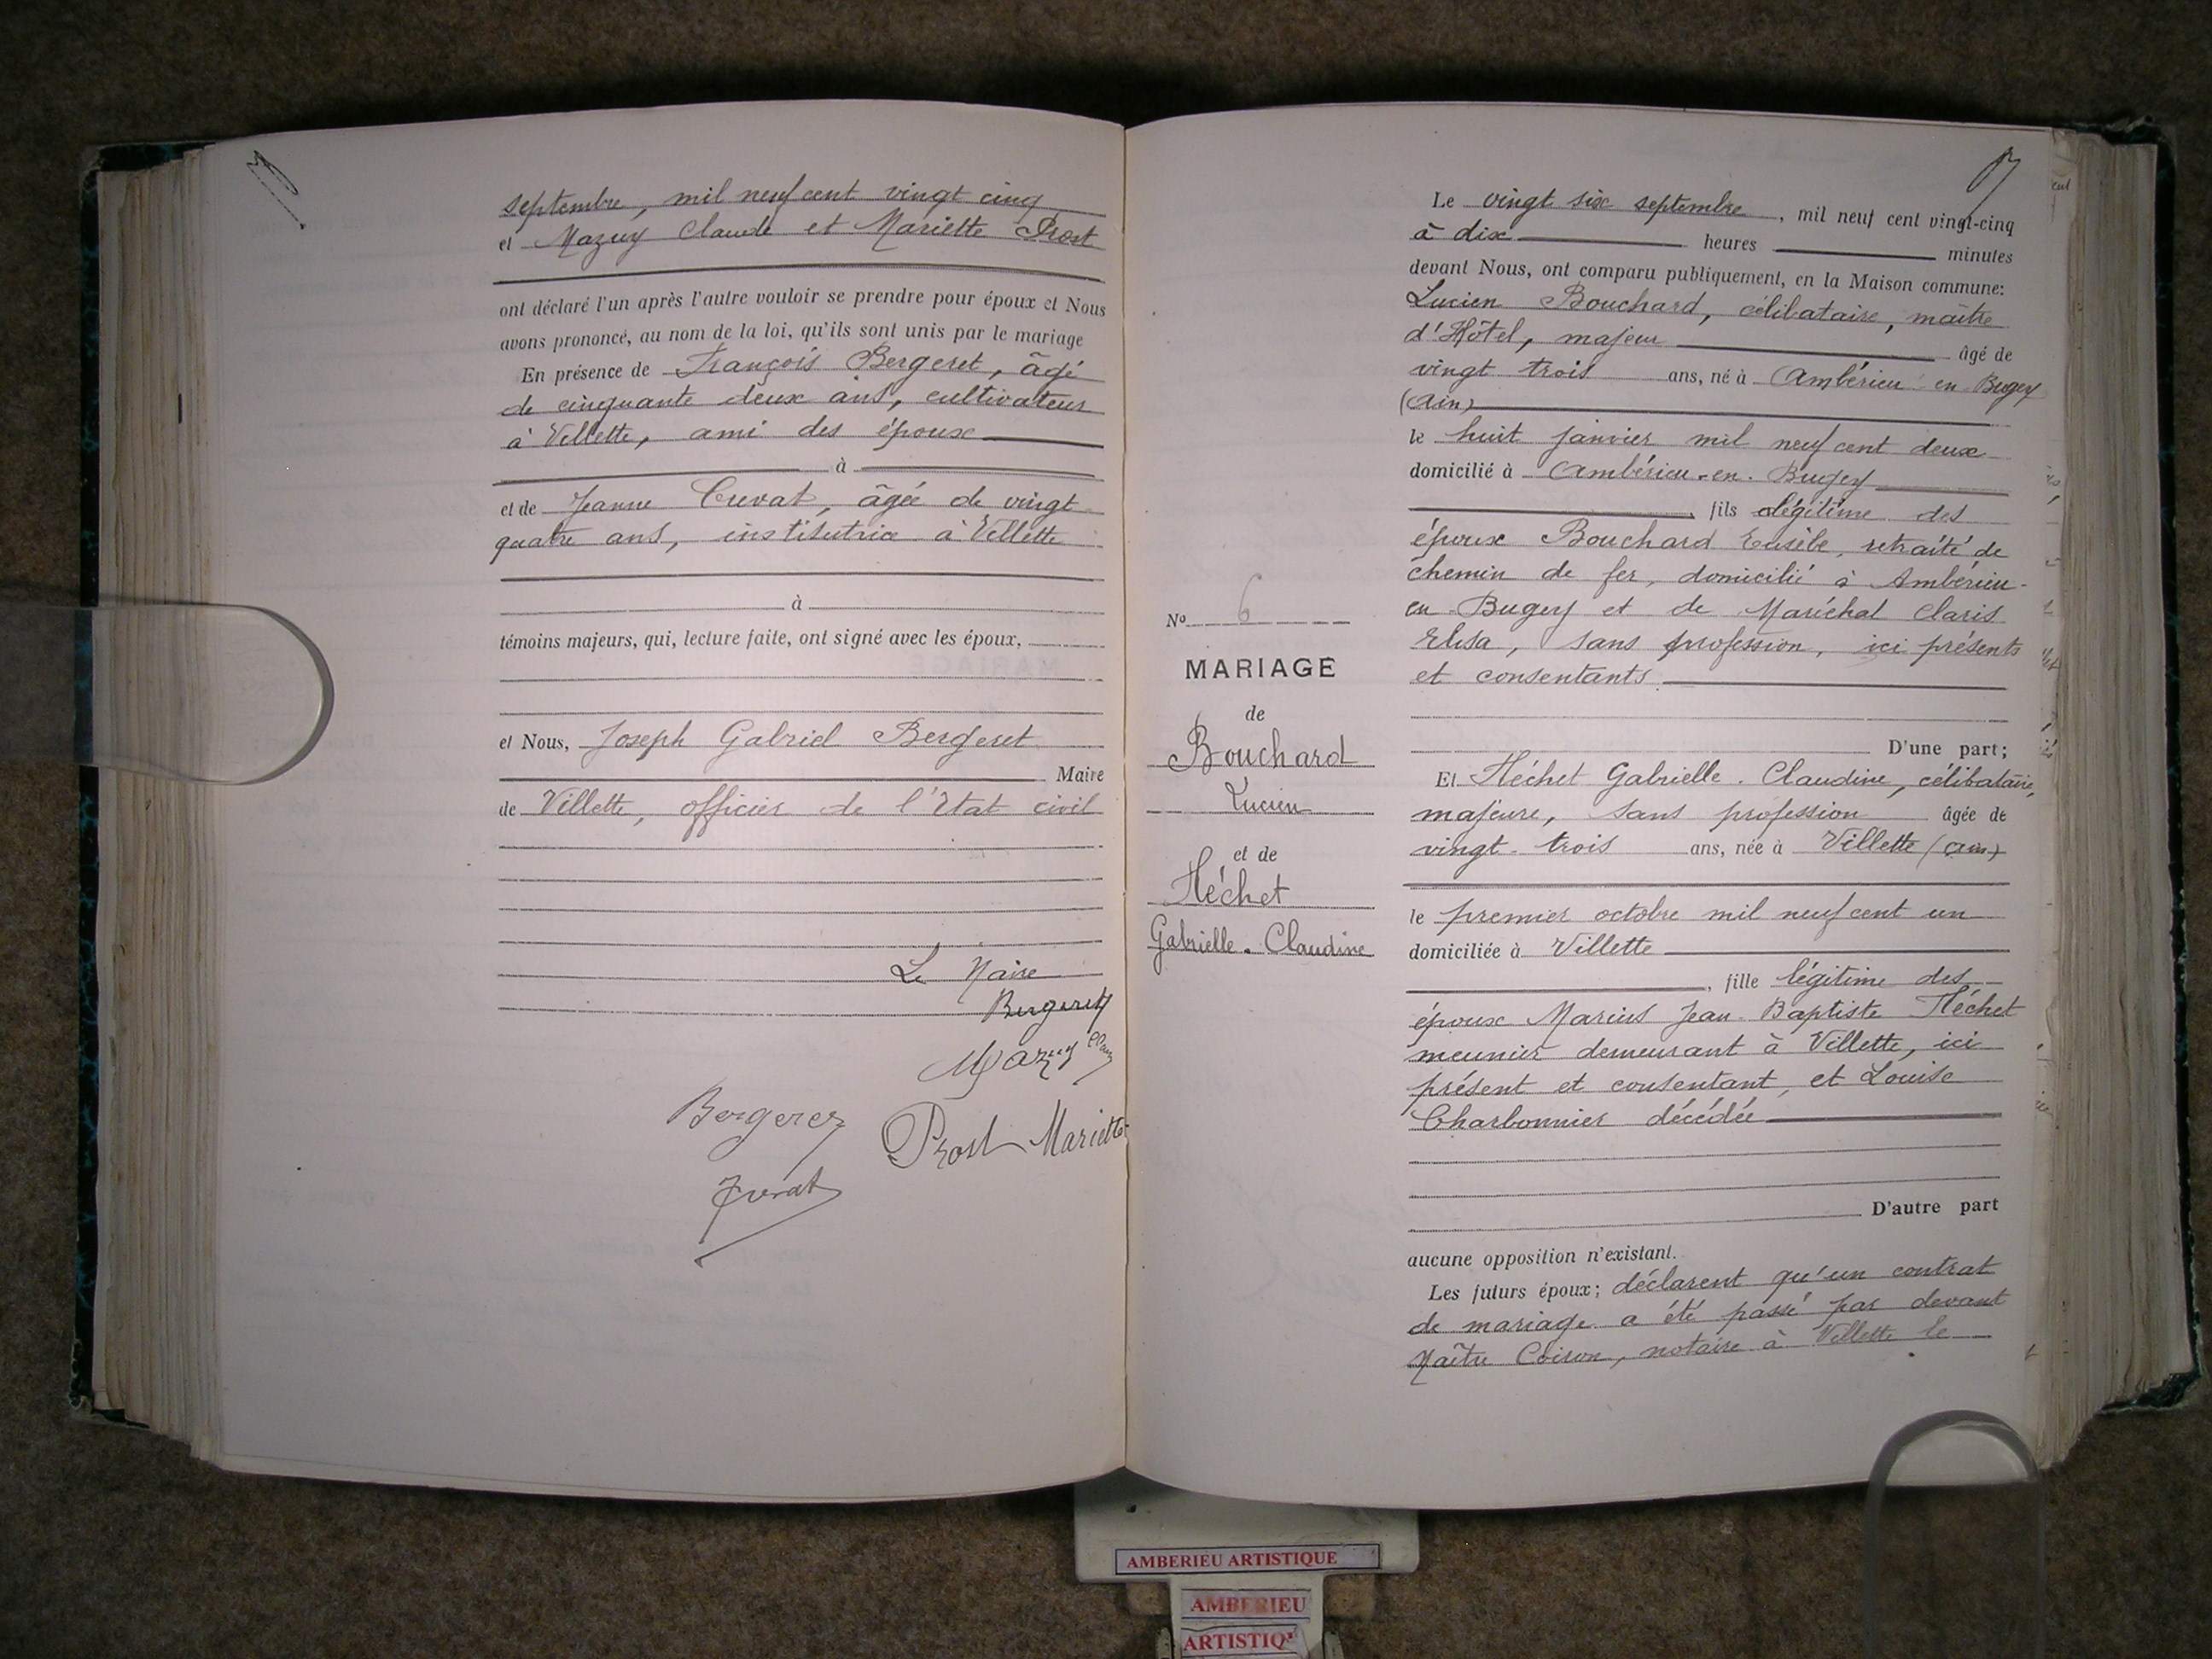 septembre, mil neuf cent vingt cinq
et Mazuy Claude et Mariette Prost
ont déclaré l'un après l'autre vouloir se prendre pour époux et Nous
avons prononcé, au nom de la loi, qu'ils sont unis par le mariage
En présence de François Bergeret, âgé
de cinquante deux ans, cultivateur
à Villette, ami des époux
à
et de Jeanne Curvat, âgée de vingt
quatre ans, institutrice à Villette
à
témoins majeurs, qui, lecture faite, ont signé avec les époux.
et Nous, Joseph Gabriel Bergeret
Maire
de Villette, officier de l'Etat civil
Le Maire
Bergeret
Mazuy
Bergeret
Prost Mariette
Le vingt six septembre, mil neuf cent vingt-cinq
à dix heures minutes
devant Nous, ont comparu publiquement, en la Maison commune:
Lucien Bouchard, célibataire, maître
d'Hôtel, majeur âgé de
vingt trois ans, né à Ambérieu en Bugey
(Ain)
le huit janvier mil neuf cent deux
domicilié à Ambérieu-en-Bugey
, fils légitime des
époux Bouchard Eusèbe, retraité de
chemin de fer, domicilié à Ambérieu-
en-Bugey et de Maréchal Claris
Elisa, sans profession, ici présents
et consentants
D'une part;
Et Fléchet Gabrielle. Claudine, célibataire,
majeure, sans profession âgée de
vingt-trois ans, née à Villette (Ain)
le premier octobre mil neuf cent un
domiciliée à Villette
, fille légitime des
époux Marius Jean-Baptiste Fléchet
meunier demeurant à Villette, ici
présent et consentant, et Louise
Charbonnier décédée
D'autre part
aucune opposition n'existant.
Les futurs époux; déclarent qu'un contrat
de mariage a été passé par devant
Maître Coiron, notaire à Villette le
No 6
MARIAGE
de
Bouchard
Lucien
et de
Fléchet
Gabrielle. Claudine
AMBERIEU ARTISTIQUE
AMBERIEU
ARTISTIQ